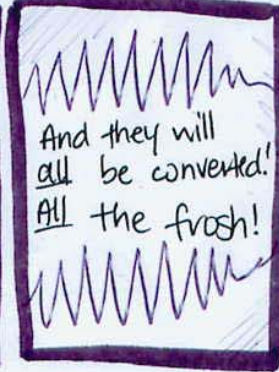 And they will
all be converted!
All the frosh!